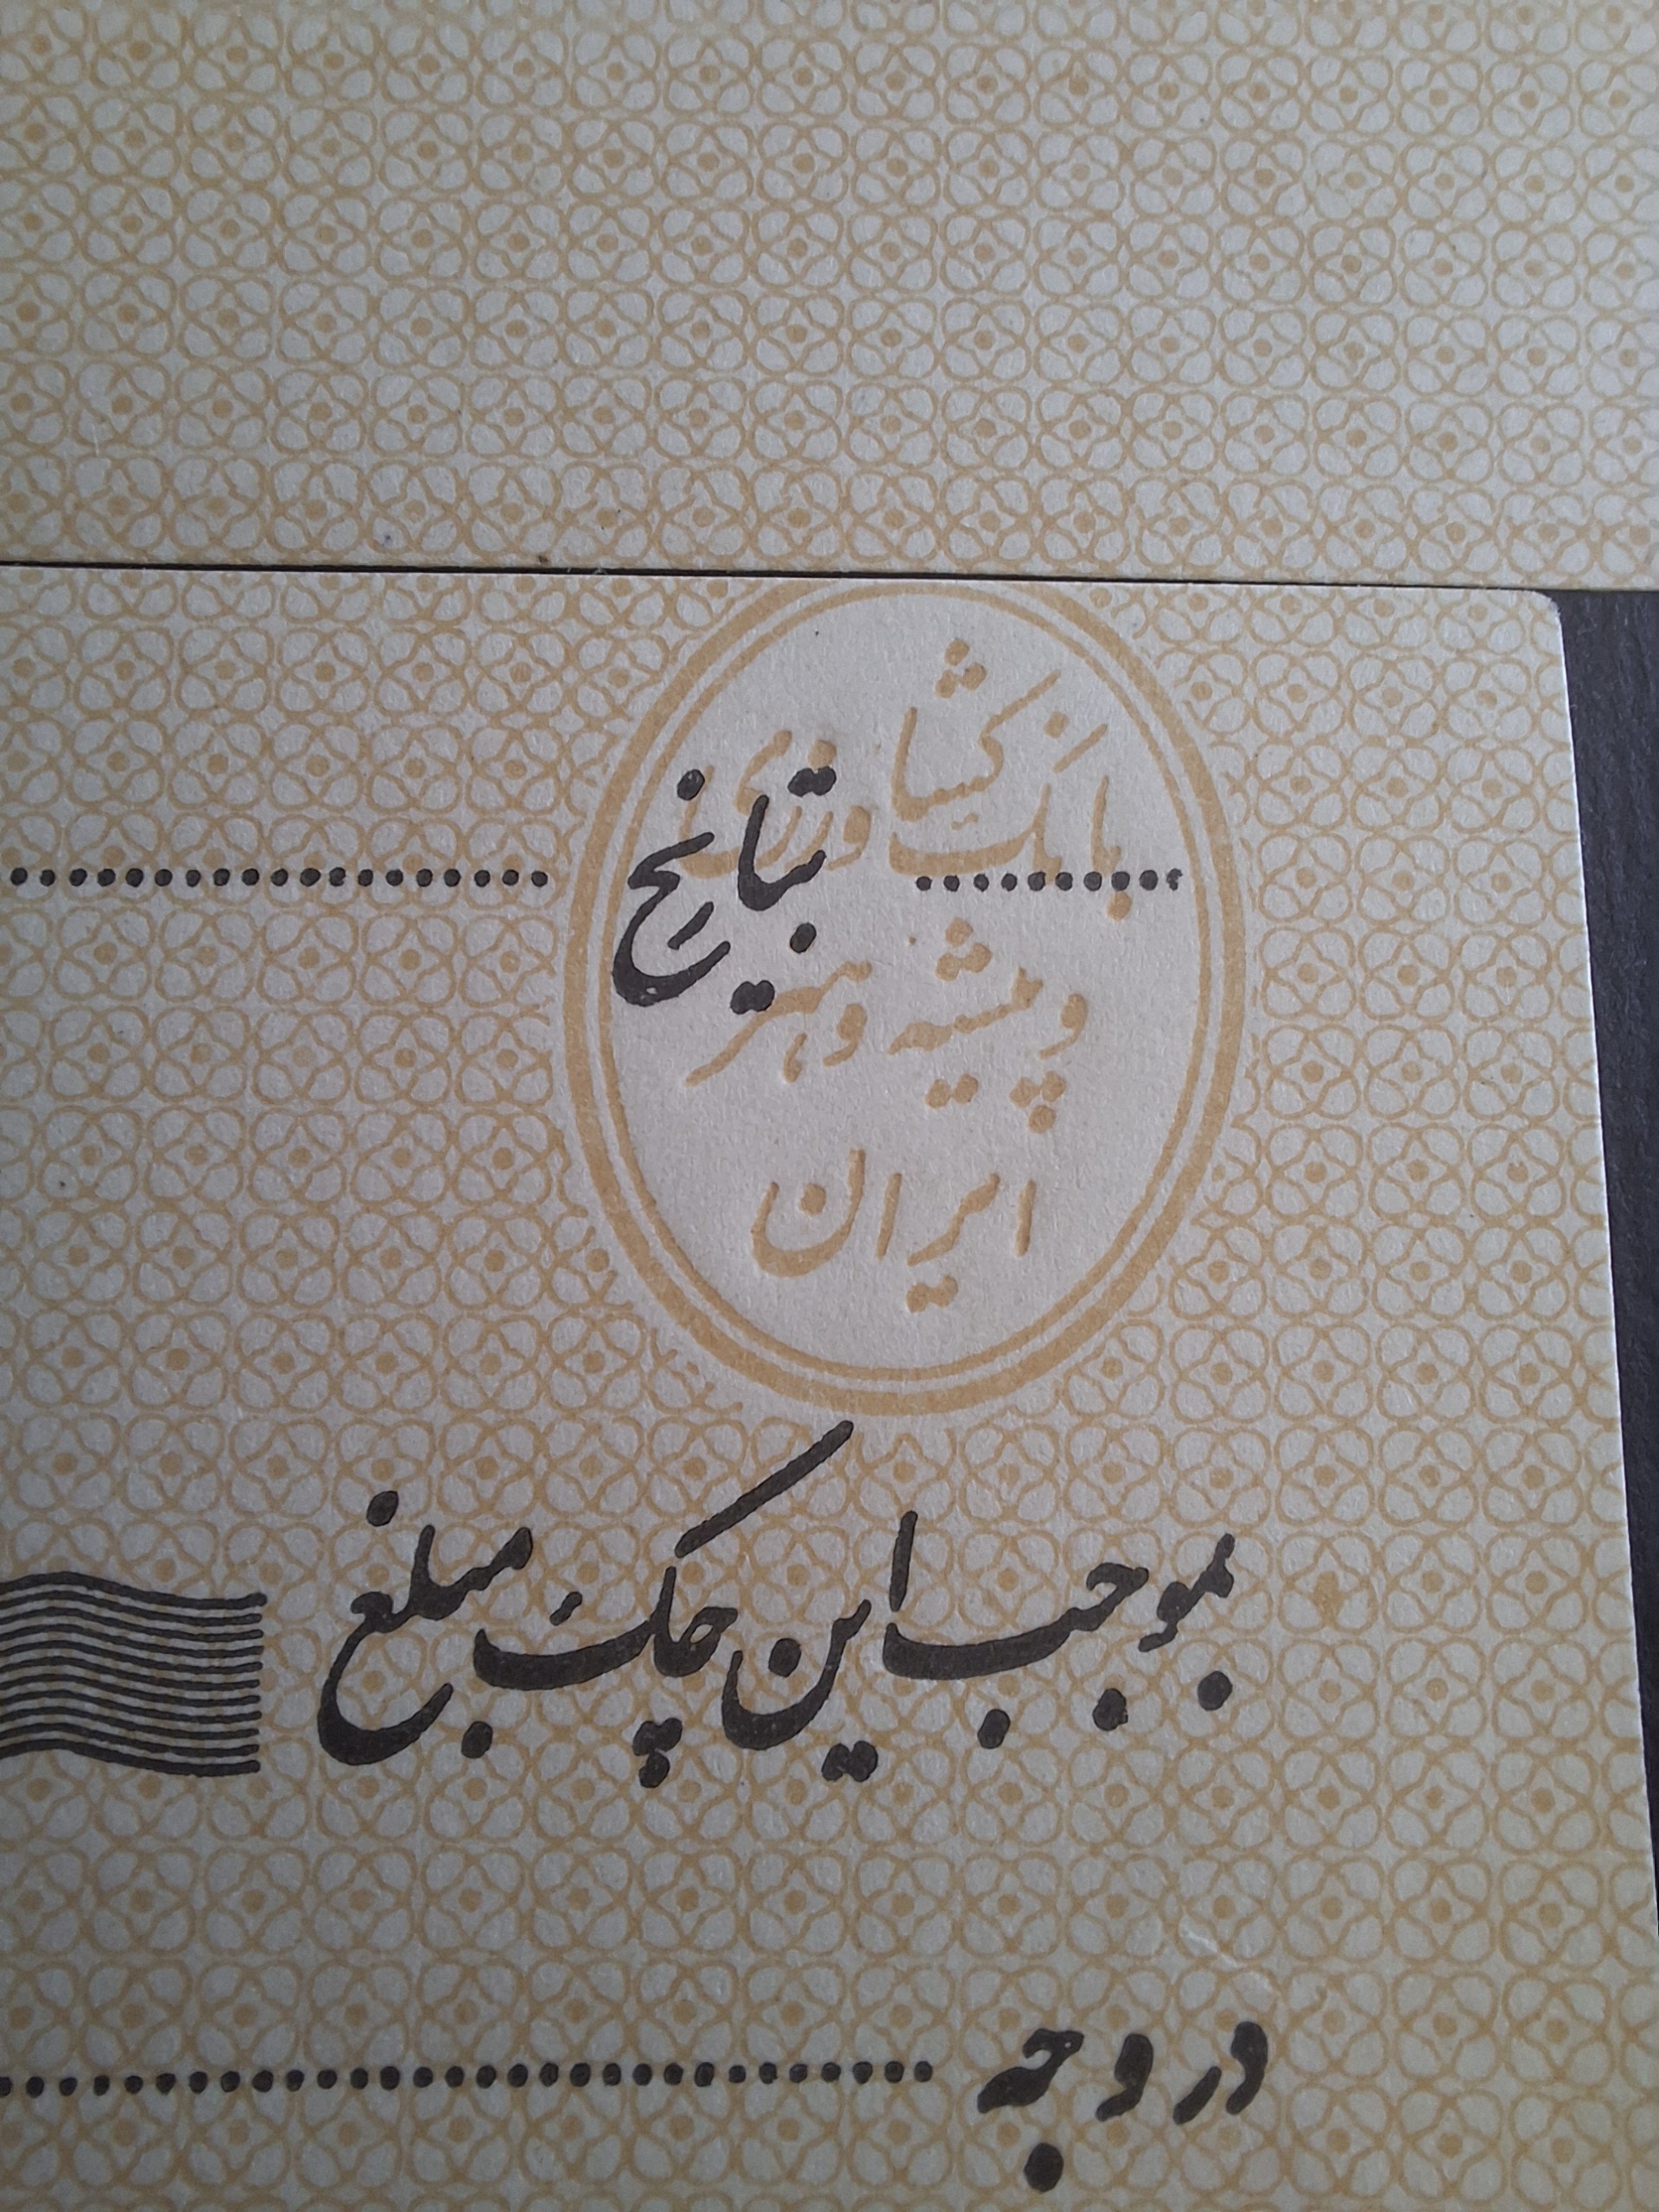 بانک کشاورزی
و پیشه و هنر
ایران
بتاریخ
بموجب این چک مبلغ
در وجه